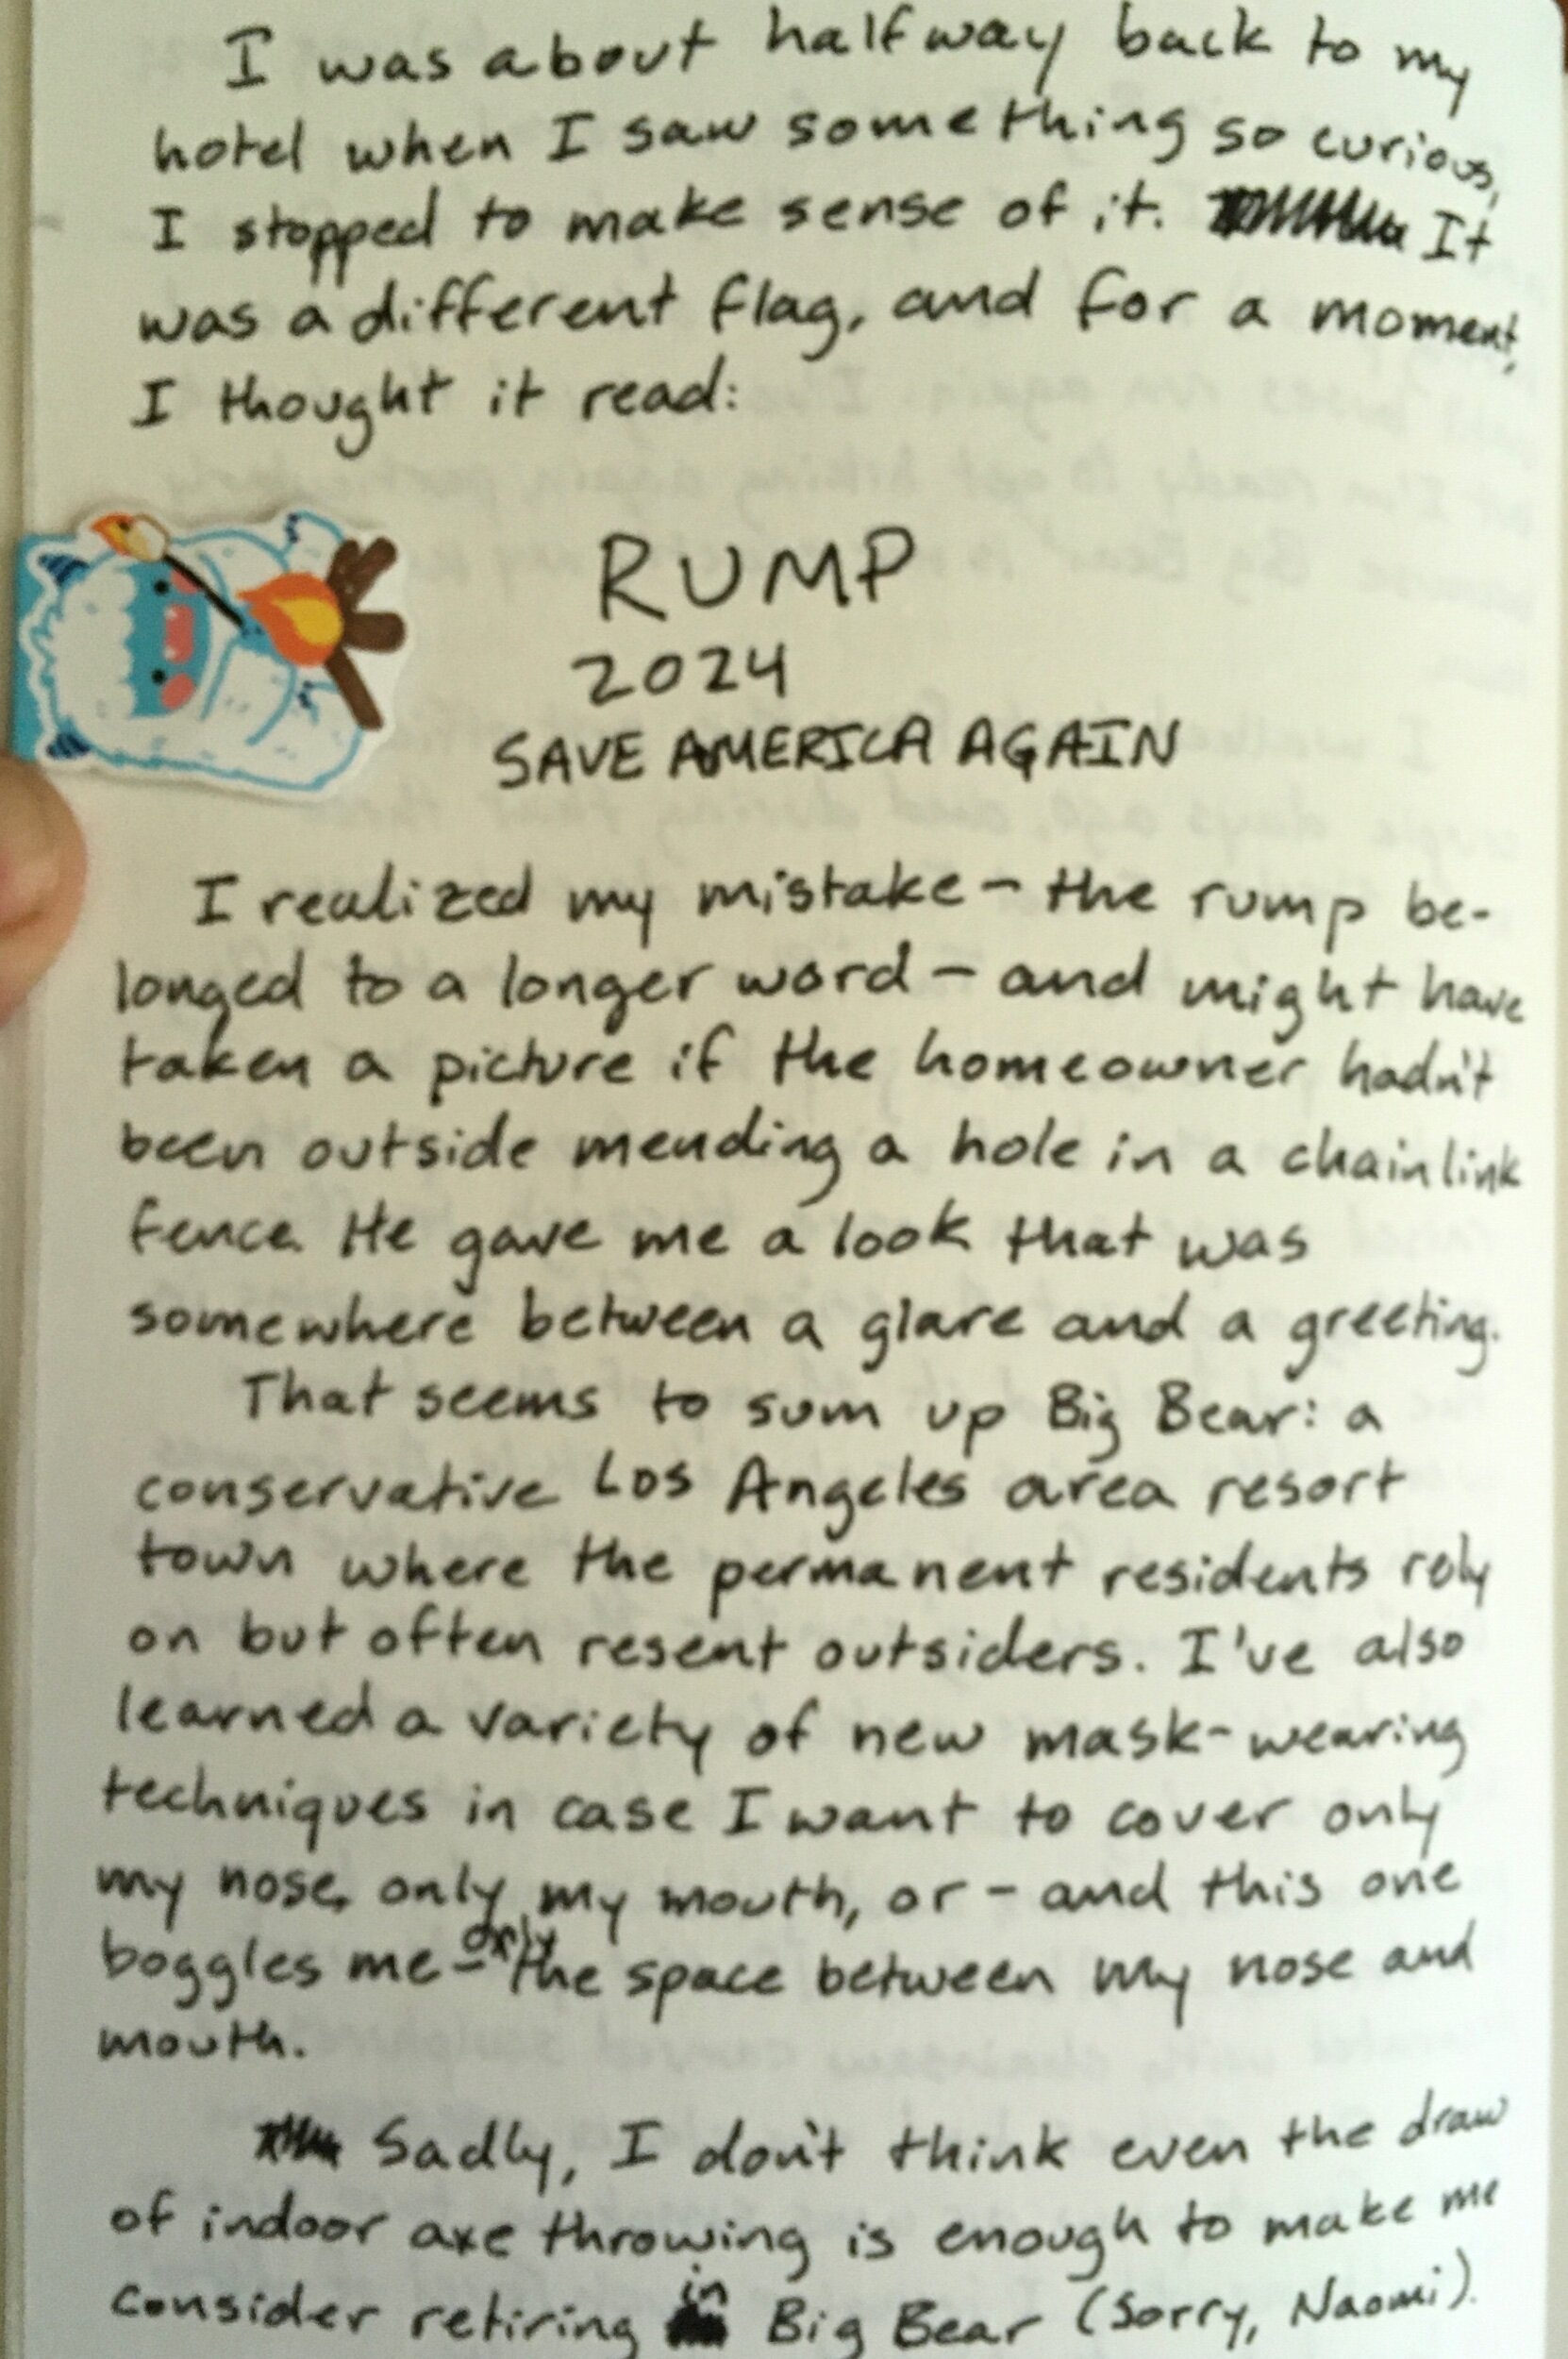 I was about halfway back to my
hotel when I saw something so curious,
I stopped to make sense of it. It
was a different flag, and for a moment,
I thought it read:
RUMP
2024
SAVE AMERICA AGAIN
I realized my mistake - the rump be-
longed to a longer word - and might have
taken a picture if the homeowner hadn't
been outside mending a hole in a chainlink
fence. He gave me a look that was
somewhere between a glare and a greeting.
That seems to sum up Big Bear: a
conservative Los Angeles area resort
town where the permanent residents rely
on but often resent outsiders. I've also
learned a variety of new mask-wearing
techniques in case I want to cover only
my nose, only my mouth, or - and this one
boggles me - only the space between my nose and
mouth.
Sadly, I don't think even the draw
of indoor axe throwing is enough to make me
consider retiring in Big Bear (Sorry, Naomi).